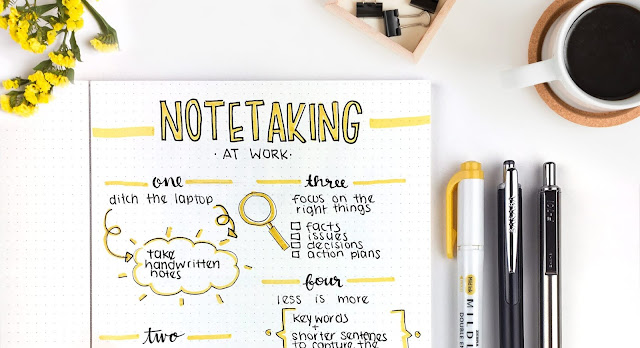 NOTETAKING
· AT WORK ·
one
ditch the laptop
take
handwritten
notes
two
three
focus on the
right things
facts
issues
decisions
action plans
four
less is more
keywords
+
shorter sentences
to capture the
MILDL
DOUBLE